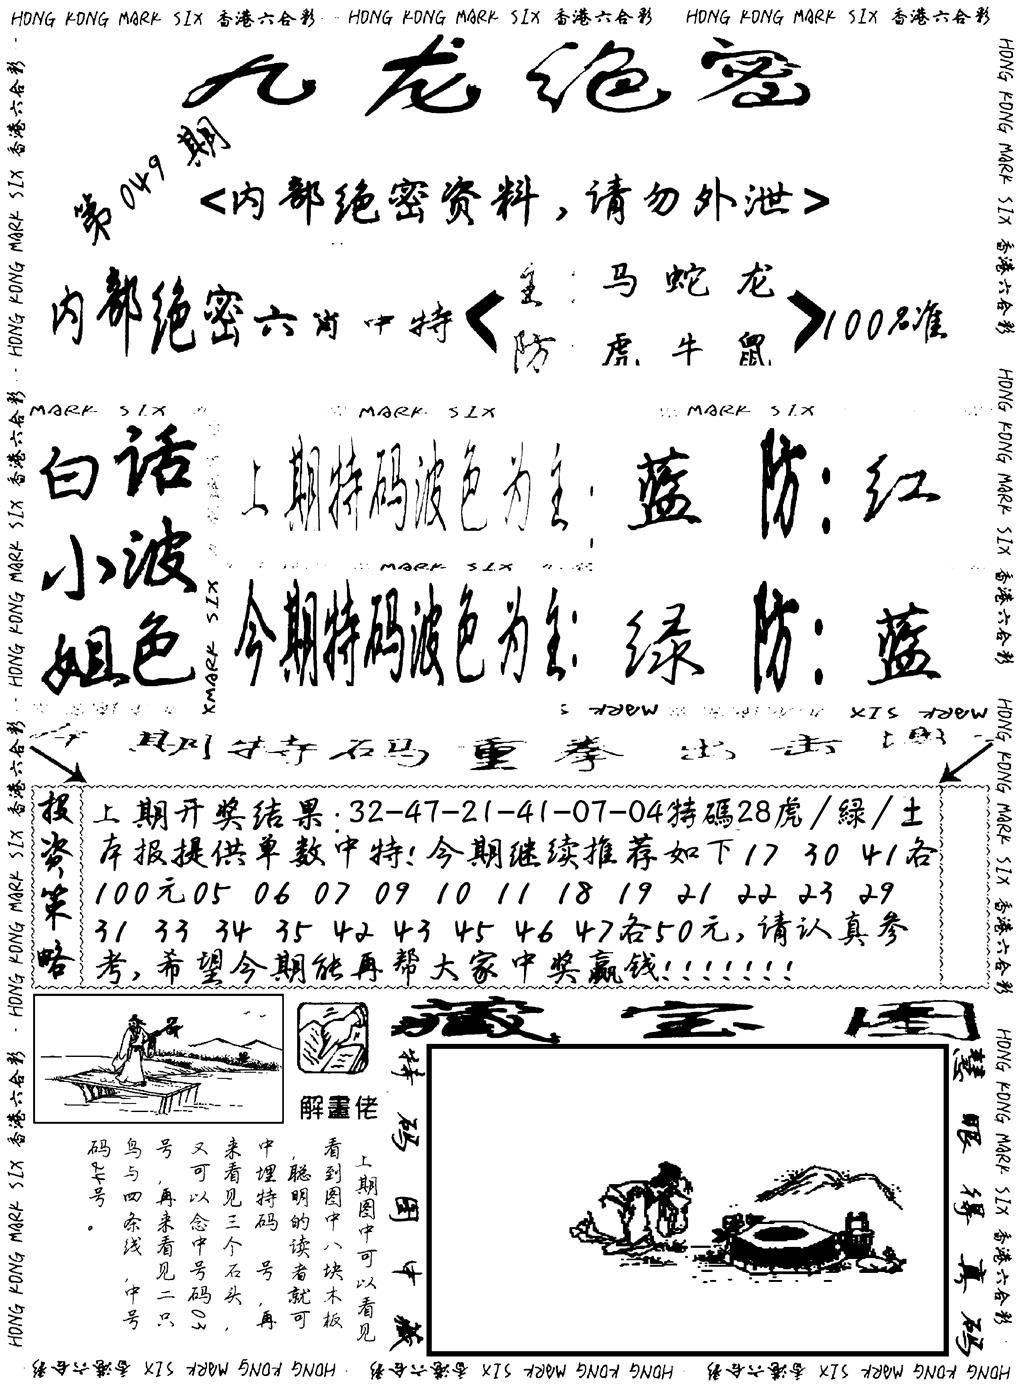 HONG KONG MARK SIX 香港六合彩 HONG KONG MARK SIX 香港六合彩 HONG KONG MARK SIX 香港六合彩
九龙绝密
第049期
<内部绝密资料,请勿外泄>
内部绝密六肖中特
主:马蛇龙
防 虎牛鼠
100名准
MARK SIX MARK SIX MARK SIX
白话
小波
姐色
上期特码波色为主: 蓝 防: 红
MARK SIX
今期特码波色为主: 绿 防: 蓝
XMARK SIX
MARK S MARK SIX
今期特码重拳出击
投资策略
上期开奖结果:32-47-21-41-07-04特碼28虎/緑/土
本报提供单数中特!今期继续推荐如下17 30 41各
100元05 06 07 09 10 11 18 19 21 22 23 29
31 33 34 35 42 43 45 46 47各50元,请认真参
考,希望今期能再帮大家中奖赢钱!!!!!!!
解畫佬
藏宝图
特码图中藏
慧眼得真码
上期图中可以看见
看到图中八块木板
,聪明的读者就可
中埋特码 号,再
来看见三个石头,
又可以念中号码03
号,再来看见二只
鸟与四条线,中号
码24号。
HONG KONG MARK SIX 香港六合彩 HONG KONG MARK SIX 香港六合彩 HONG KONG MARK SIX 香港六合彩 HONG KONG MARK SIX 香港六合彩
HONG KONG MARK SIX 香港六合彩 HONG KONG MARK SIX 香港六合彩 HONG KONG MARK SIX 香港六合彩 HONG KONG MARK SIX 香港六合彩
HONG KONG MARK SIX 香港六合彩 HONG KONG MARK SIX 香港六合彩 HONG KONG MARK SIX 香港六合彩